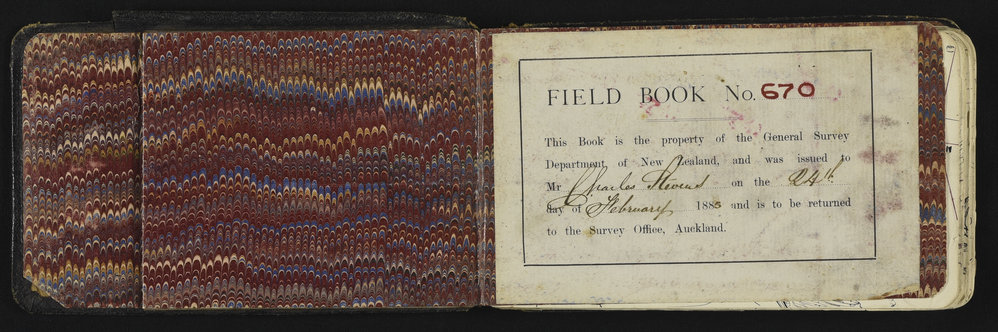 FIELD BOOK No. 670
This Book is the property of the General Survey
Department, of New Zealand, and was issued to
Mr Charles Stevens on the 24th
day of February 1883 and is to be returned
to the Survey Office, Auckland.